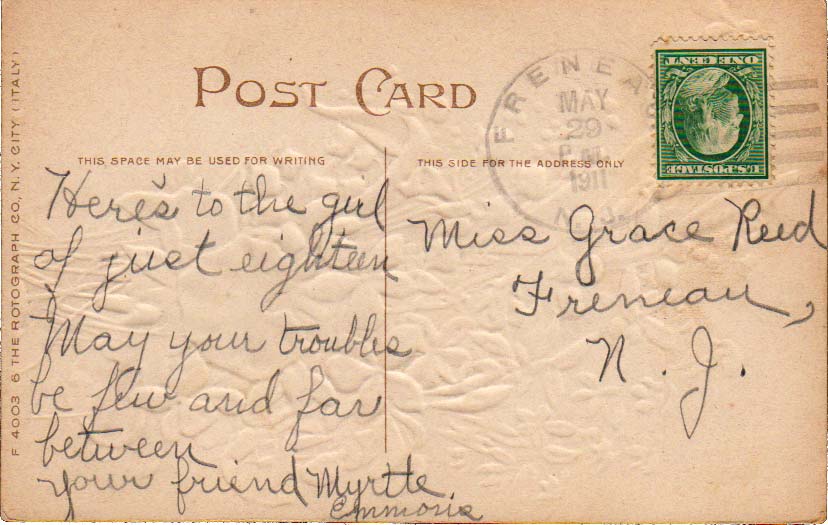 POST CARD
THIS SPACE MAY BE USED FOR WRITING
THIS SIDE FOR THE ADDRESS ONLY
F 4003 6 THE ROTOGRAPH CO., N.Y. CITY (ITALY)
FRENEA
MAY
29
1911
N.J.
ONE CENT
U.S. POSTAGE
Here's to the girl
of just eighteen
May your troubles
be few and far
between
your friend Myrtle
Emmons
Miss Grace Reed
Freneau,
N. J.